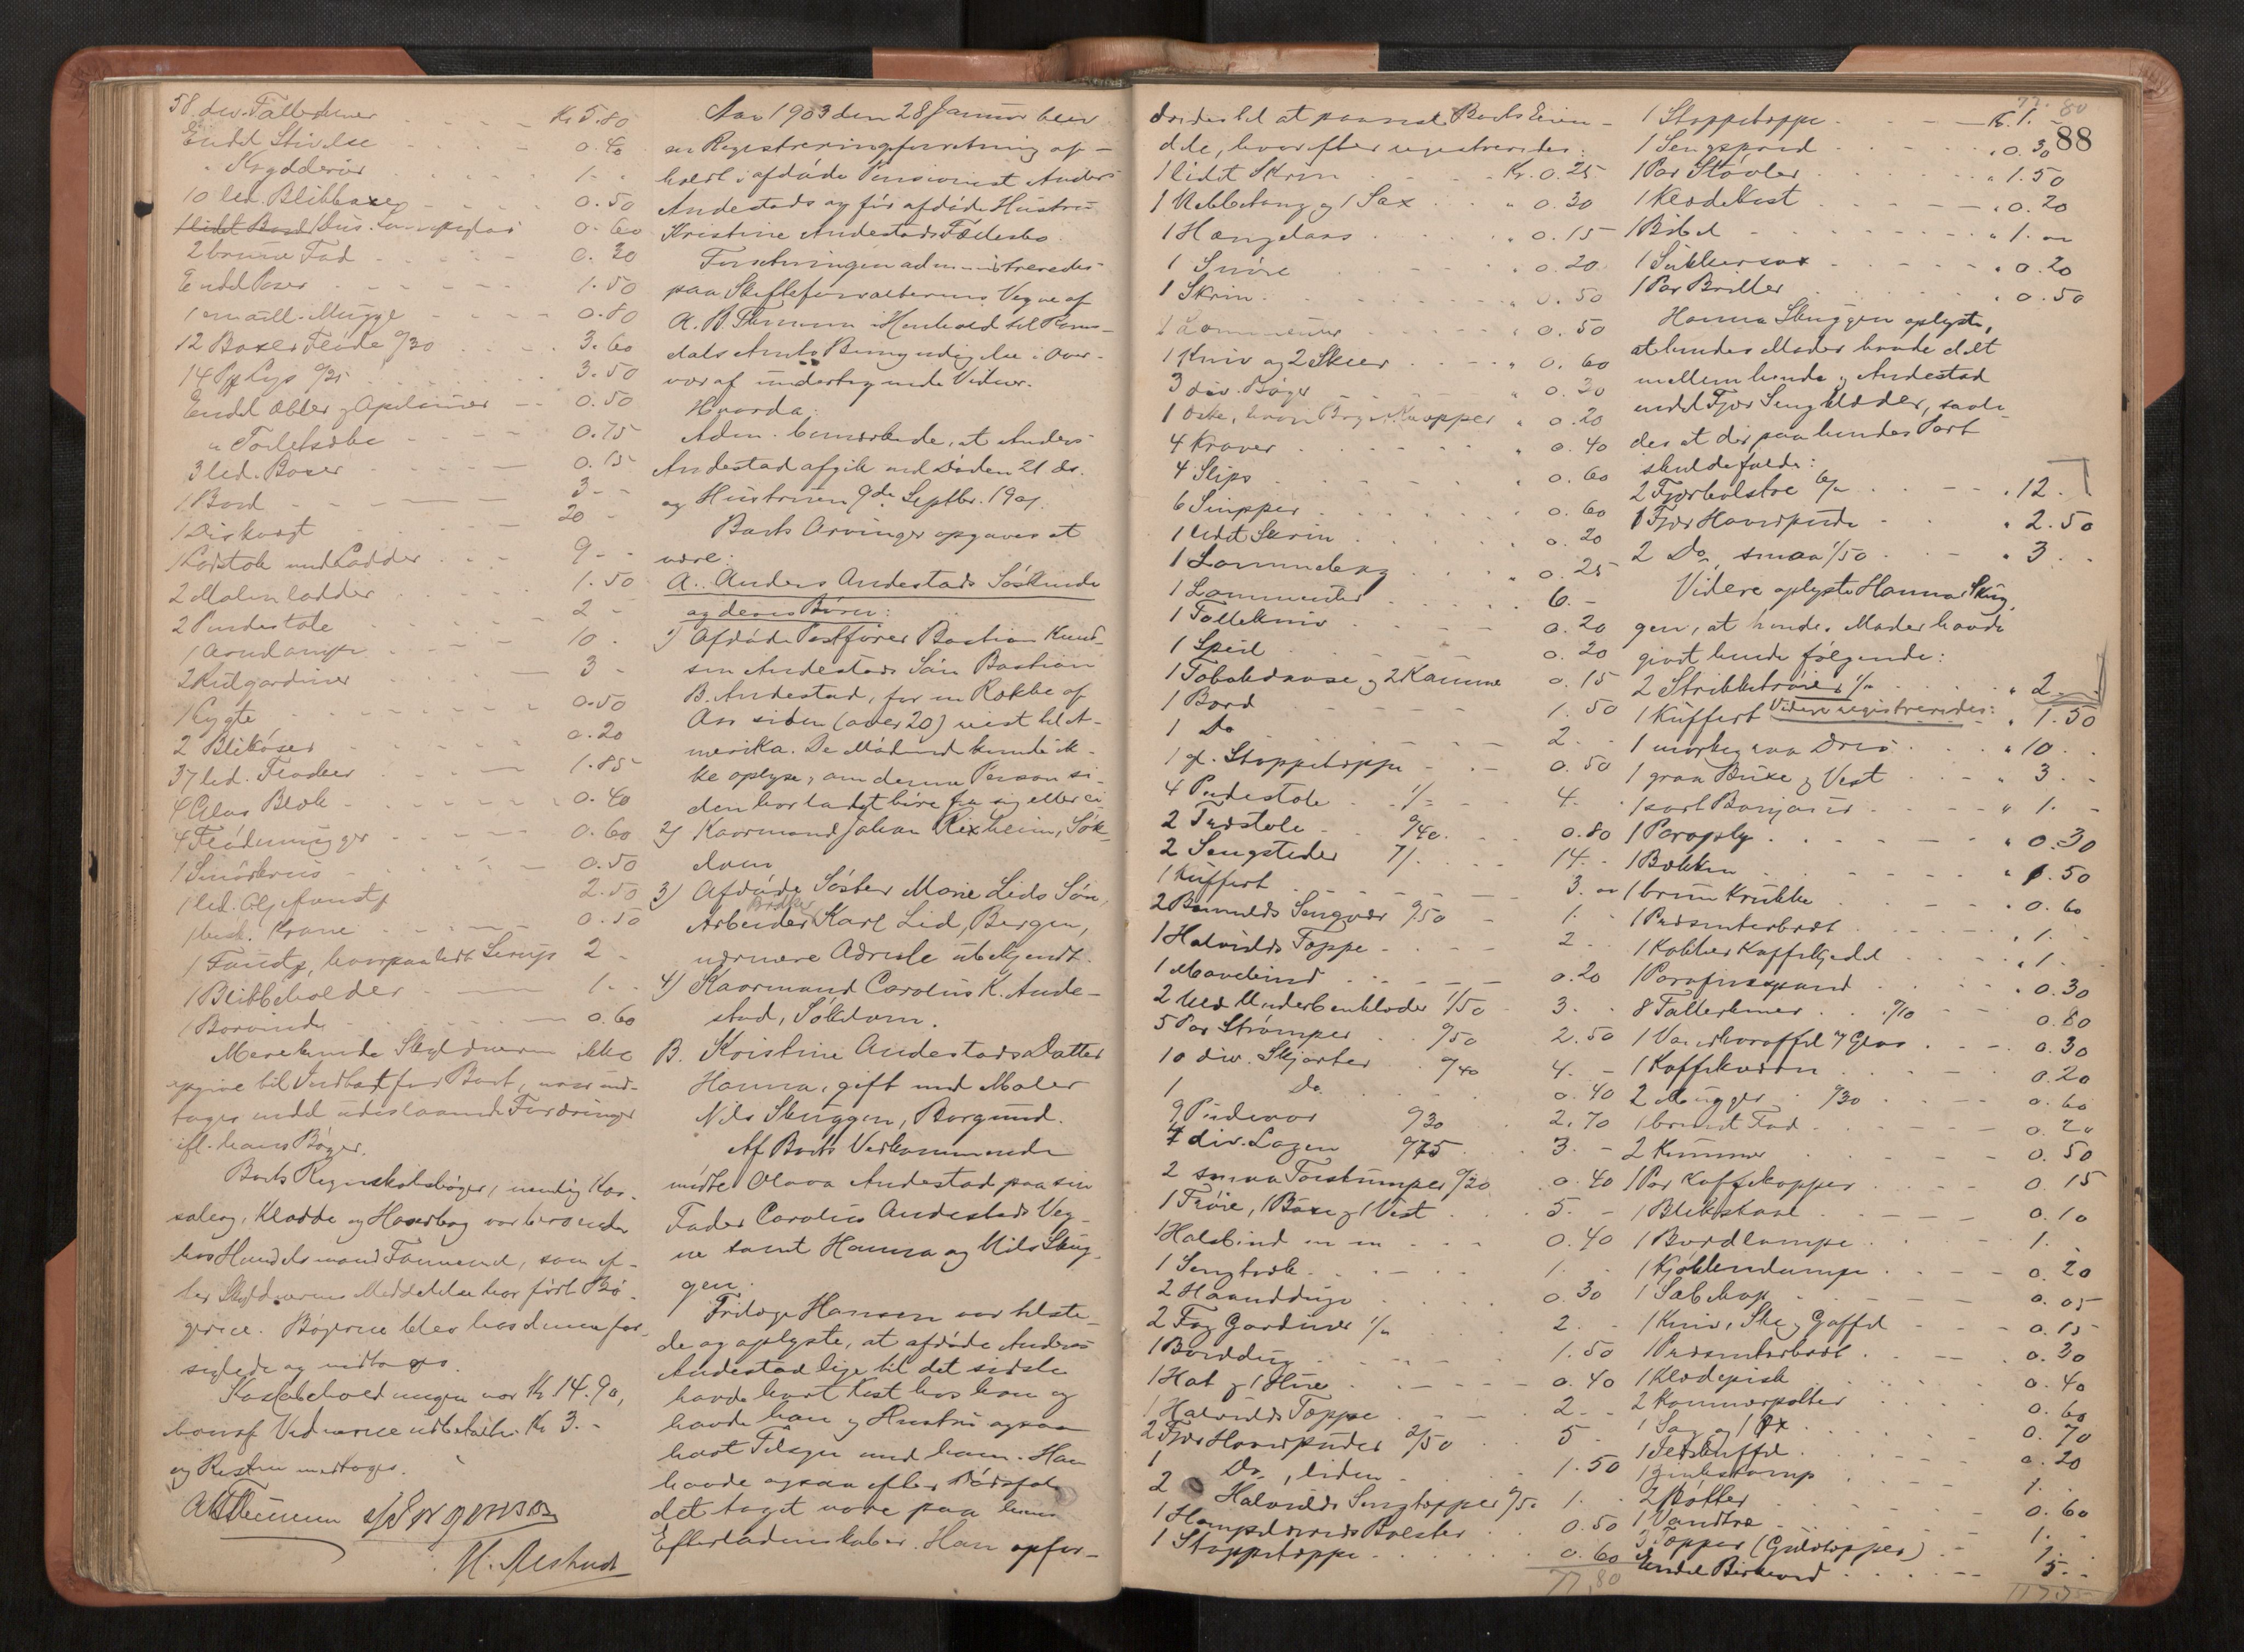 58 div. Tallerkener Kr 5.80
Endel Stivelse 0.40
" Krydderier 1.-
10 led. Blikbaxer 0.50
1 lidet Bord 1 Dus. Lampeglas 0.60
2 brune Fad 0.30
Endel Poser 1.50
1 emaill. Mugge 0.80
12 Boxer Fløde 0/30 3.60
14 Pk Lys 0/25 3.50
Endel Æbler og Apelsiner 0.50
" Toiletsæbe 0.75
3 led. Boxer 0.15
1 Bord 3 -
1 Diskvægt 20 -
1 Ladstok med Ladder 9 -
2 Malerladder 1.50
2 Pindestole 2 -
1 Arm Lampe 10 -
2 Rulgardiner 3 -
1 Lygte 0.50
2 Blikøser 0.20
37 led. Flasker 1.85
4 Glas Blæk 0.40
4 Flødemugger 0.60
1 Smørkrus 0.50
1 led. Oljefustg 2.50
1 besk. Krane 0.50
1 Fustg, hvorpaa lidt Sirup 2 -
1 Blikbeholder 1 -
1 Borvinde 0.60
Mere kunde Skyldneren ikke
opgive til Indtægt for Boet, naar und-
tages endel udestaaende Fordringer
ifl. hans Bøger.
Boets Regnskabsbøger, nemlig Kas-
sabog, Kladde og Hovedbog var beroende
hos Handelsmand Tømmend, som ef-
ter Skyldnerens Meddelelse har ført Bø-
gerne. Bøgerne blev hos denne for-
seglede og modtages.
Kassabeholdningen var Kr 14.90,
hvoraf Vidnerne udbetaltes Kr 3.-
og Resten modtages.
Aar 1903 den 28 Januar blev
en Registreringsforretning af-
holdt i afdøde Pensionist Anders
Andestads og før afdøde Hustru
Kristine Andestads Fællesbo.
Forretningen administreredes
paa Skifteforvalterens Vegne af
A. B. i Henhold til Roms-
dals Amts Bemyndigelse i Over-
vær af undertegnede Vidner.
Hvorda:
Adm. bemærkede, at Anders
Andestad afgik ved Døden 21 ds.
og Hustruen 9de Septbr. 1901.
Boets Arvinger opgaves at
være:
A. Anders Andestads Søskende
og deres Børn:
1) Afdøde Postfører Bastian Knud-
sen Andestads Søn Bastian
B. Andestad, for en Række af
Aar siden (over 20) reist til A-
merika. De Mødende kunde ik-
ke oplyse, om denne Person si-
den har ladet høre fra sig eller ei
2) Kaarmand Johan Rixheim, Søk-
elven
3) Afdøde Søster Marie Lids Søn,
Arbeider Karl Lid, Bergen,
nærmere Adresse ubekjendt.
4) Kaarmand Carolus K. Ande-
stad, Søkelven.
B. Kristine Andestads Datter
Hanna, gift med Maler
Nils Skuggen, Borgund.
Af Boets Vedkommende
mødte Olava Andestad paa sin
Fader Carolus Andestads Veg-
ne samt Hanna og Nils Skug-
gen.
Hansen var tilste-
de og oplyste, at afdøde Anders
Andestad lige til det sidste
havde havt Kost hos ham og
havde han og Hustru ogsaa
havt Tilsyn med ham. Han
havde ogsaa efter Dødsfal-
det taget vare paa hans
Efterladenskaber. Han opfor-
77.80
88
dredes til at paavise Boets Eien-
dele, hvorefter registreredes:
1 lidet Skrin Kr. 0.25
1 Nebbetang og 1 Sax " 0.30
1 Hængelaas " 0.15
1 Snøre " 0.20
1 Skrin " 0.50
1 Lommeuhr " 0.50
1 Kniv og 2 Skeer " 0.60
3 div. Bøger " 0.30
1 Æske, hvori Knapper " 0.20
4 Kraver " 0.40
4 Slips " 0.60
6 Snipper 0.60
1 lidet Skrin 0.20
1 Lommebog " 0.25
1 Lommeuhr 6.-
1 Follekniv 0.20
1 Speil 0.20
1 Tobaksdaase og 2 Kamme 0.15
1 Bord 1.50
1 Do 2 -
1 gl. Stoppeteppe 0.50
4 Pindestole 1/- 4 -
2 Træstole 0/40 0.80
2 Sengesteder 7/- 14 -
1 Kuffert 3 -
2 Bomulds Sengvær 0/50 1 -
1 Halvulds Teppe 2 -
1 Mavebind 0.20
2 Uld Underbenklæder 1/50 3 -
5 Par Strømper 0/50 2.50
10 div. Skjorter 0/40 4 -
1 Do 0.40
9 Pudevar 0/30 2.70
4 div. Lagen 0/75 3 -
2 smaa 0/20 0.40
1 Trøie, 1 Buxe og 1 Vest 5 -
1 Halsbind 0.40
1 Sengtæk 1 -
2 Haanddug 0.30
2 Fag Gardiner 1/- 2 -
1 Borddug 1.50
1 Hat og 1 Hue 0.40
1 Halvulds Teppe 2 -
2 Fjør Hovedpuder 2/50 5
1 Do, liden 1.50
2 Halvulds Sengtepper 0/50 1 -
1 Bolster 0.50
1 Stoppeteppe 0.60
77,80
1 Stoppeteppe Kr. 1.-
1 Sengspred " 0.30
1 Par Støvler " 1.50
1 Klædekist " 0.20
1 Bibel " 1.-
1 Sukkersax " 0.20
1 Par Briller " 0.50
Hanna Skuggen oplyste,
at hendes Moder havde delt
mellem hende og Andestad
endel Fjør Sengklæder, saale-
des at der paa hendes Part
skulde falde:
2 Fjørbolstre 6/- " 12.
1 Fjør Hovedpude " 2.50
2 Do, smaa 1/50 " 3 -
Videre oplyste Hanna Skug-
gen, at hendes Moder havde
givet hende følgende:
2 Strikketrøier 1/- " 2
Videre registreredes:
1 Kuffert " 1.50
1 mørkegraa Dres " 10 -
1 graa Buxe og Vest " 3 -
1 sort " 1 -
1 Paraply " 0.30
1 Bækken " 1.50
1 brun Krukke " 0.60
1 Presenterbræt " 1 -
1 Kobber Kaffekjedel " 1 -
1 Parafinspand " 0.30
8 Tallerkener 0/10 0.80
1 Vandkaraffel og Glas 0.30
1 Kaffekværn 0.20
2 Mugger 0/30 0.60
1 brunt Fad 0.20
2 Kummer 0.50
1 Par Kaffekopper 0.15
1 Blikskaal 0.10
1 Bordlampe 1 -
1 Kjøkkenlampe 0.20
1 Sæbekop 0.05
1 Kniv, Ske og Gaffel 0.15
1 Presenterbræt 0.30
1 Klædepisk 0.40
2 Kammerpotter 0.60
1 Sag og 1 Øx 0.70
1 Ildskuffel 0.20
1 Zinkstamp 1 -
2 Bøtter 0.60
1 Vandtræ 1 -
3 Tepper (Gulvtepper) 1 -
Endel Birkeved 5 -